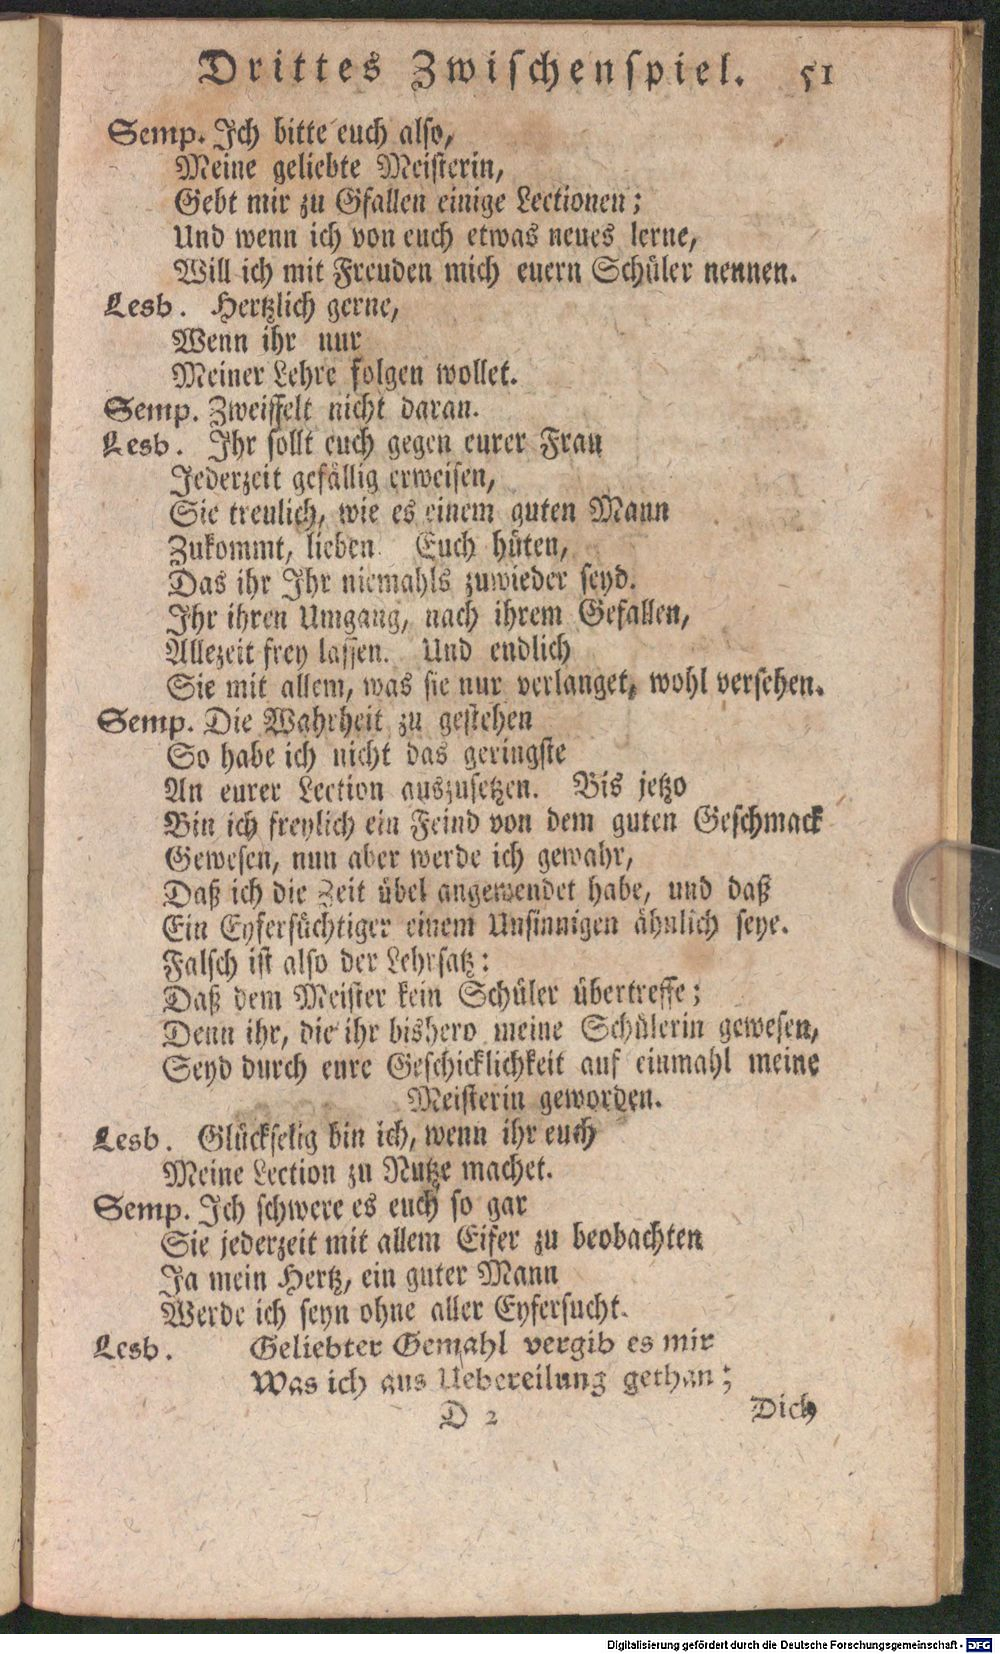 Drittes Zwischenspiel. 51
Semp. Ich bitte euch also,
Meine geliebte Meisterin,
Gebt mir zu Gfallen einige Lectionen;
Und wenn ich von euch etwas neues lerne,
Will ich mit Freuden mich euern Schüler nennen.
Lesb. Hertzlich gerne,
Wenn ihr nur
Meiner Lehre folgen wollet.
Semp. Zweiffelt nicht daran.
Lesb. Ihr sollt euch gegen eurer Frau
Jederzeit gefällig erweisen,
Sie treulich, wie es einem guten Mann
Zukommt, lieben. Euch hüten,
Das ihr Ihr niemahls zuwieder seyd.
Ihr ihren Umgang, nach ihrem Gefallen,
Allezeit frey lassen. Und endlich
Sie mit allem, was sie nur verlanget, wohl versehen.
Semp. Die Wahrheit zu gestehen
So habe ich nicht das geringste
An eurer Lection auszusetzen. Bis jetzo
Bin ich freylich ein Feind von dem guten Geschmack
Gewesen, nun aber werde ich gewahr,
Daß ich die Zeit übel angewendet habe, und daß
Ein Eyfersüchtiger einem Unsinnigen ähnlich seye.
Falsch ist also der Lehrsatz:
Daß dem Meister kein Schüler übertreffe;
Denn ihr, die ihr bishero meine Schülerin gewesen,
Seyd durch eure Geschicklichkeit auf einmahl meine
Meisterin geworden.
Lesb. Glückselig bin ich, wenn ihr euch
Meine Lection zu Nutze machet.
Semp. Ich schwere es euch so gar
Sie jederzeit mit allem Eifer zu beobachten
Ja mein Hertz, ein guter Mann
Werde ich seyn ohne aller Eyfersucht.
Lesb. Geliebter Gemahl vergib es mir
Was ich aus Uebereilung gethan;
D 2 Dich
Digitalisierung gefördert durch die Deutsche Forschungsgemeinschaft - DFG